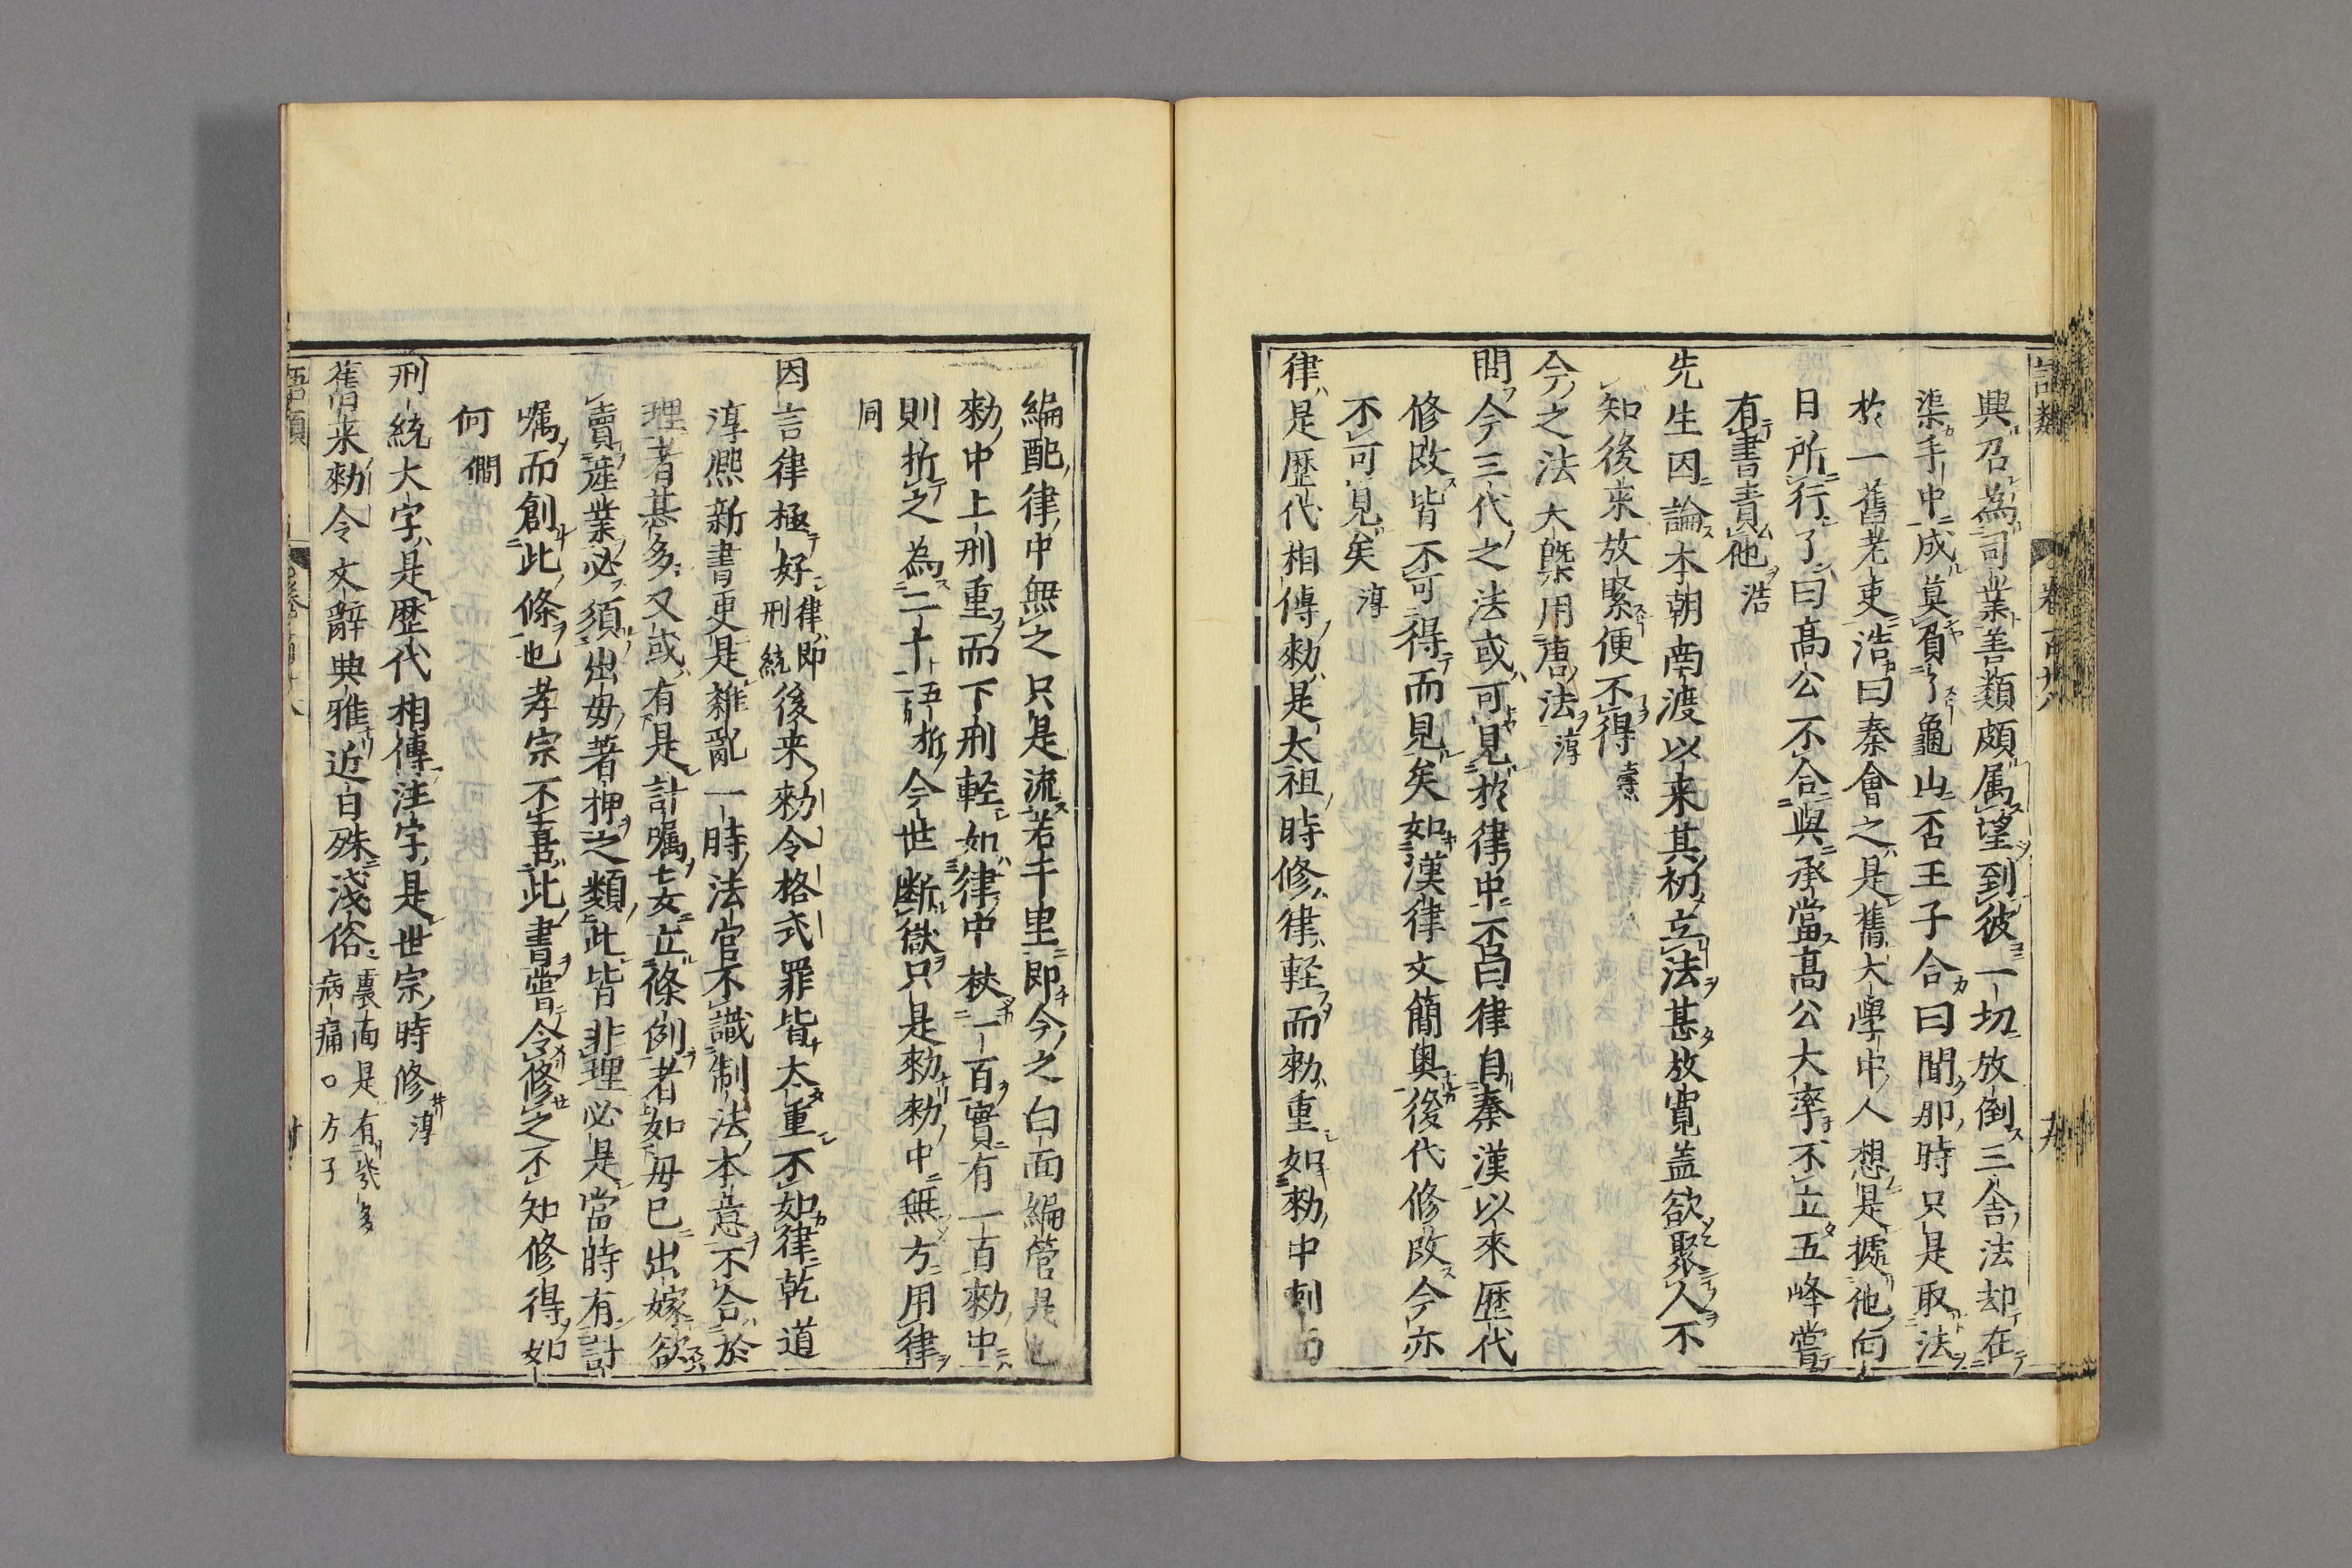 語類 卷百廿八 十九
興召為司業善類頗属望到彼一切放倒三舍法却在
渠手中成莫負了龜山否王子合曰聞那時只是取法
於一舊老吏浩曰秦會之是舊大學中人想是據他向
日所行了曰高公不合與承當高公大率不立五峰嘗
有書責他 浩
先生因論本朝南渡以来其初立法甚放寛盖欲聚人不
知後來放緊便不得 燾
今之法大槩用唐法 淳
問今三代之法或可見於律中否曰律自秦漢以來歴代
修改皆不可得而見矣如漢律文簡奥後代修改今亦
不可見矣 淳
律是歴代相傳勑是太祖時修律輕而勑重如勑中刺面
編配律中無之只是流若干里即今之白面編管是也
勑中上刑重而下刑軽如律中杖一百實有一百勑中
則折之為二十 五折 今世断獄只是勑勑中無方用律
同
因言律極好 律即刑統 後来勑令格式罪皆太重不如律乾道
淳熈新書更是雜亂一時法官不識制法本意不合於
理者甚多又或有是計嘱妄立條例者如母已出嫁欲
賣產業必須出母著押之類此皆非理必是當時有計
嘱而創此條也孝宗不喜此書嘗令修之不知修得如
何 僩
刑統大字是歴代相傳注字是世宗時修 淳
舊来勑令文辭典雅近日殊淺俗 裏面是有幾多病痛〇方子
語類